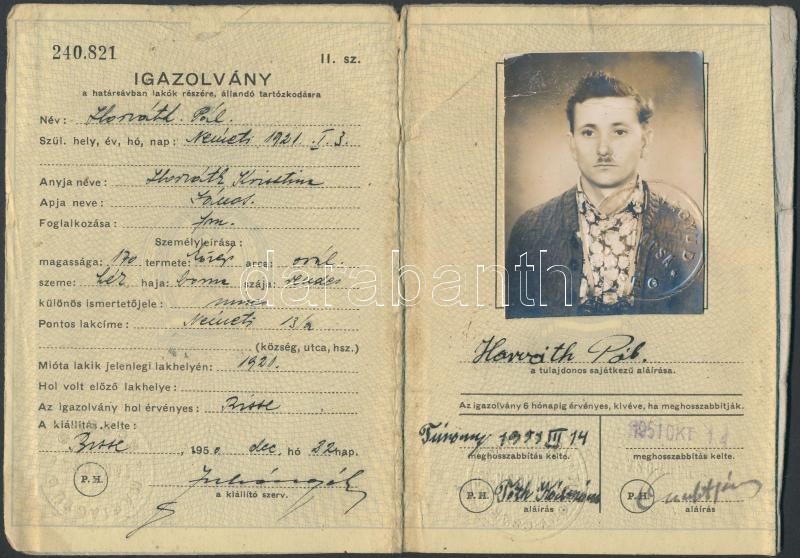 240.821
II. sz.
IGAZOLVÁNY
a határsávban lakók részére, állandó tartózkodásra
Név: Horváth Pál.
Szül. hely, év, hó, nap: Németi 1921. I. 3.
Anyja neve: Horváth Krisztina
Apja neve: János.
Foglalkozása:
Személyleírása:
magassága: 170 termete: közep arca: ovál.
szeme: kék haja: barna szája: rendes
különös ismertetőjele: nincs
Pontos lakcíme: Németi 13/a
(község, utca, hsz.)
Mióta lakik jelenlegi lakhelyén: 1921.
Hol volt előző lakhelye:
Az igazolvány hol érvényes: Bisse.
A kiállítás kelte:
Bisse, 1950 dec. hó 22 nap.
P. H.
a kiállító szerv.
darabanth
Horváth Pál.
a tulajdonos sajátkezű aláírása.
Az igazolvány 6 hónapig érvényes, kivéve, ha meghosszabbítják.
Túrony 1951 III 14
1951 OKT 11
meghosszabbítás kelte.
meghosszabbítás kelte.
P. H. Tóth
P. H.
aláírás
aláírás